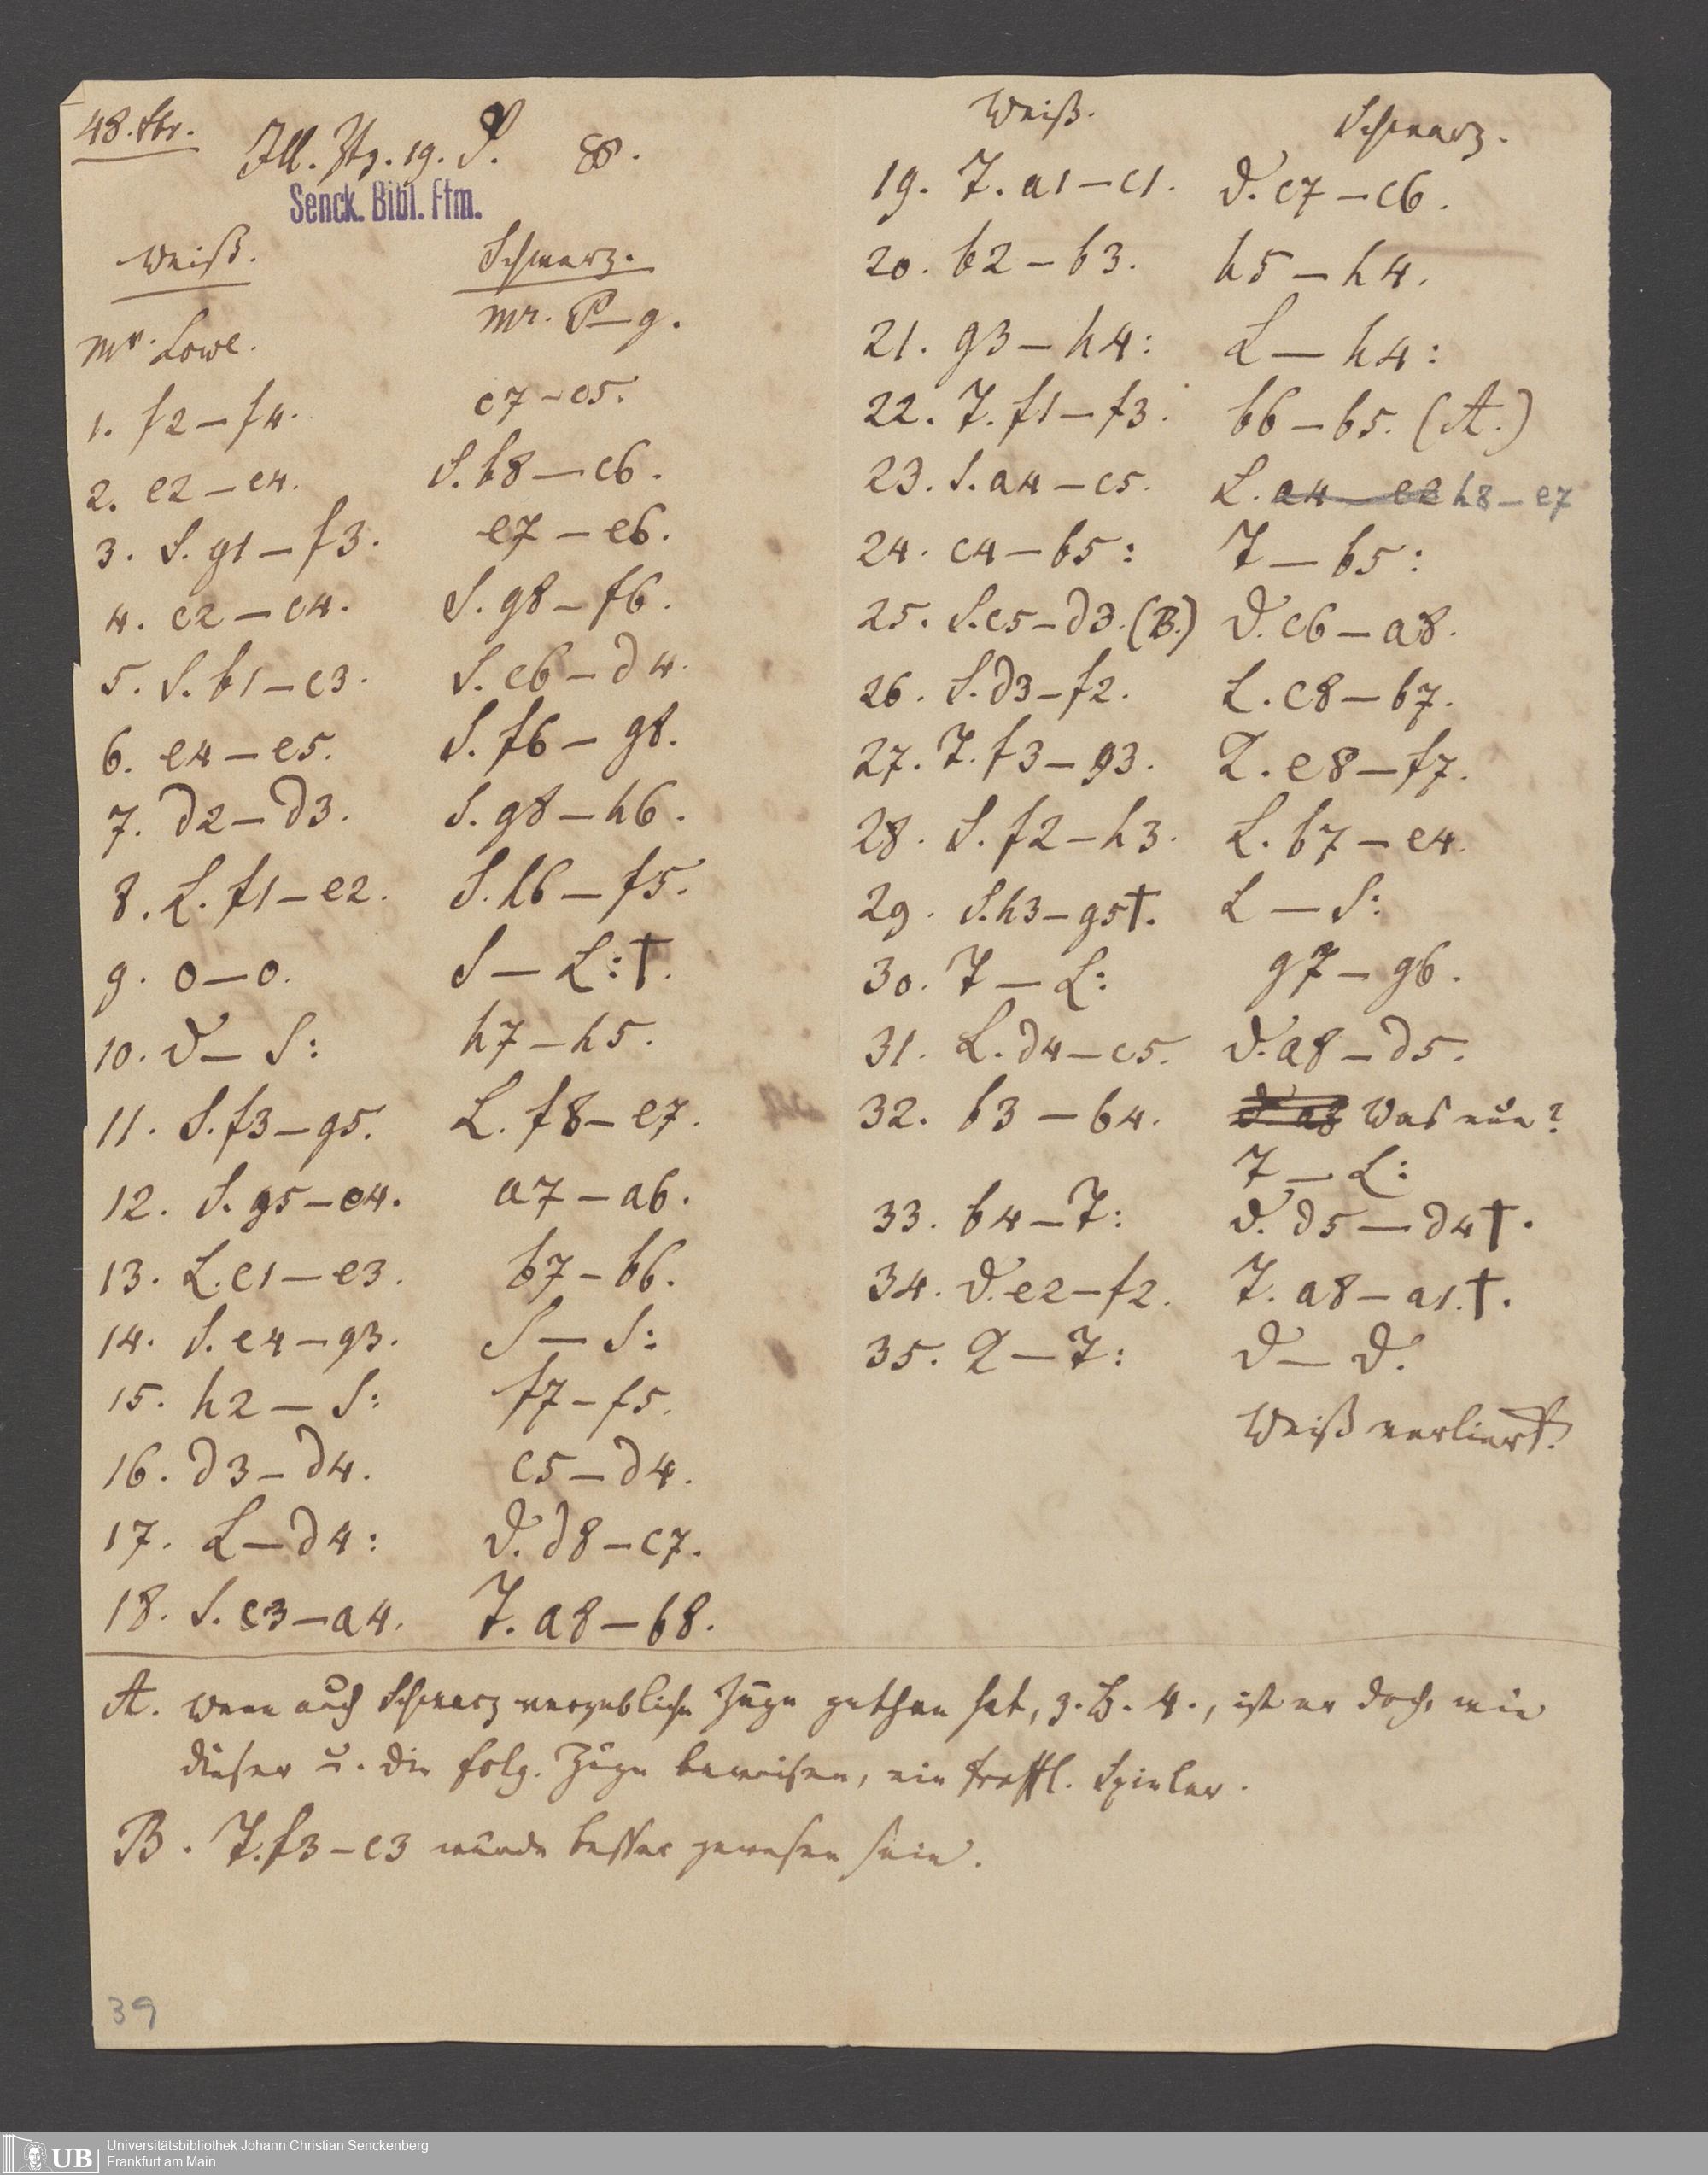 48. Fbr.
Ill. Ztg. 19. S. 88.
Senck. Bibl. Ffm.
Weiß. Schwarz.
Mr. Lowe. Mr. P—g.
1. f2–f4. c7–c5.
2. e2–e4. S. b8–c6.
3. S. g1–f3. e7–e6.
4. c2–c4. S. g8–f6.
5. S. b1–c3. S. c6–d4.
6. e4–e5. S. f6–g8.
7. d2–d3. S. g8–h6.
8. L. f1–e2. S. h6–f5.
9. o–o. S–L:†.
10. D–S: h7–h5.
11. S. f3–g5. L. f8–e7.
12. S. g5–e4. a7–a6.
13. L. c1–e3. b7–b6.
14. S. e4–g3. S–S:
15. h2–S: f7–f5.
16. d3–d4. c5–d4.
17. L–d4: D. d8–c7.
18. S. c3–a4. T. a8–b8.
Weiß. Schwarz.
19. T. a1–c1. D. c7–c6.
20. b2–b3. h5–h4.
21. g3–h4: L–h4:
22. T. f1–f3. b6–b5. (A.)
23. S. a4–c5. L. a4–e2 h8–e7
24. c4–b5: T–b5:
25. S. c5–d3. (B.) D. c6–a8.
26. S. d3–f2. L. c8–b7.
27. T. f3–g3. K. e8–f7.
28. S. f2–h3. L. b7–e4.
29. S. h3–g5†. L–S:
30. T–L: g7–g6.
31. L. d4–c5. D. a8–d5.
32. b3–b4. D. a8 Was nun?
T–L:
33. b4–T: D. d5–d4†.
34. D. e2–f2. T. a8–a1.†.
35. K–T: D–D.
Weiß verliert.
A. Wenn auch Schwarz vergebliche Züge gethan hat, z. B. 4., ist er doch, wie
dieser u. die folg. Züge beweisen, ein treffl. Spieler.
B. T. f3–c3 würde besser gewesen sein.
39
UB
Universitätsbibliothek Johann Christian Senckenberg
Frankfurt am Main